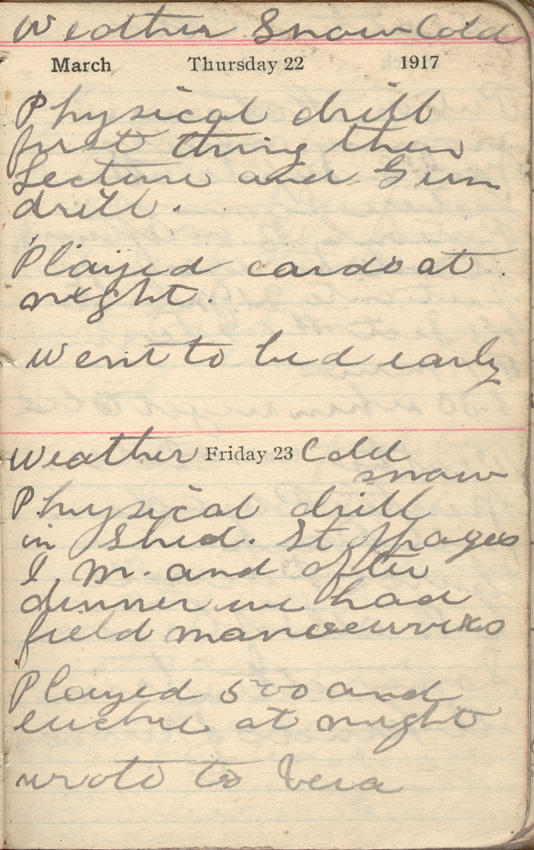 Weather Snow Cold
March Thursday 22 1917
Physical drill
first thing then
Lecture and Gun
drill.
Played cards at
night.
Went to bed early
Weather Friday 23 Cold
snow
Physical drill
in Shed. Stoppages
I. M. and after
dinner we had
field manoeuvres
Played 500 and
euchre at night
wrote to Vera